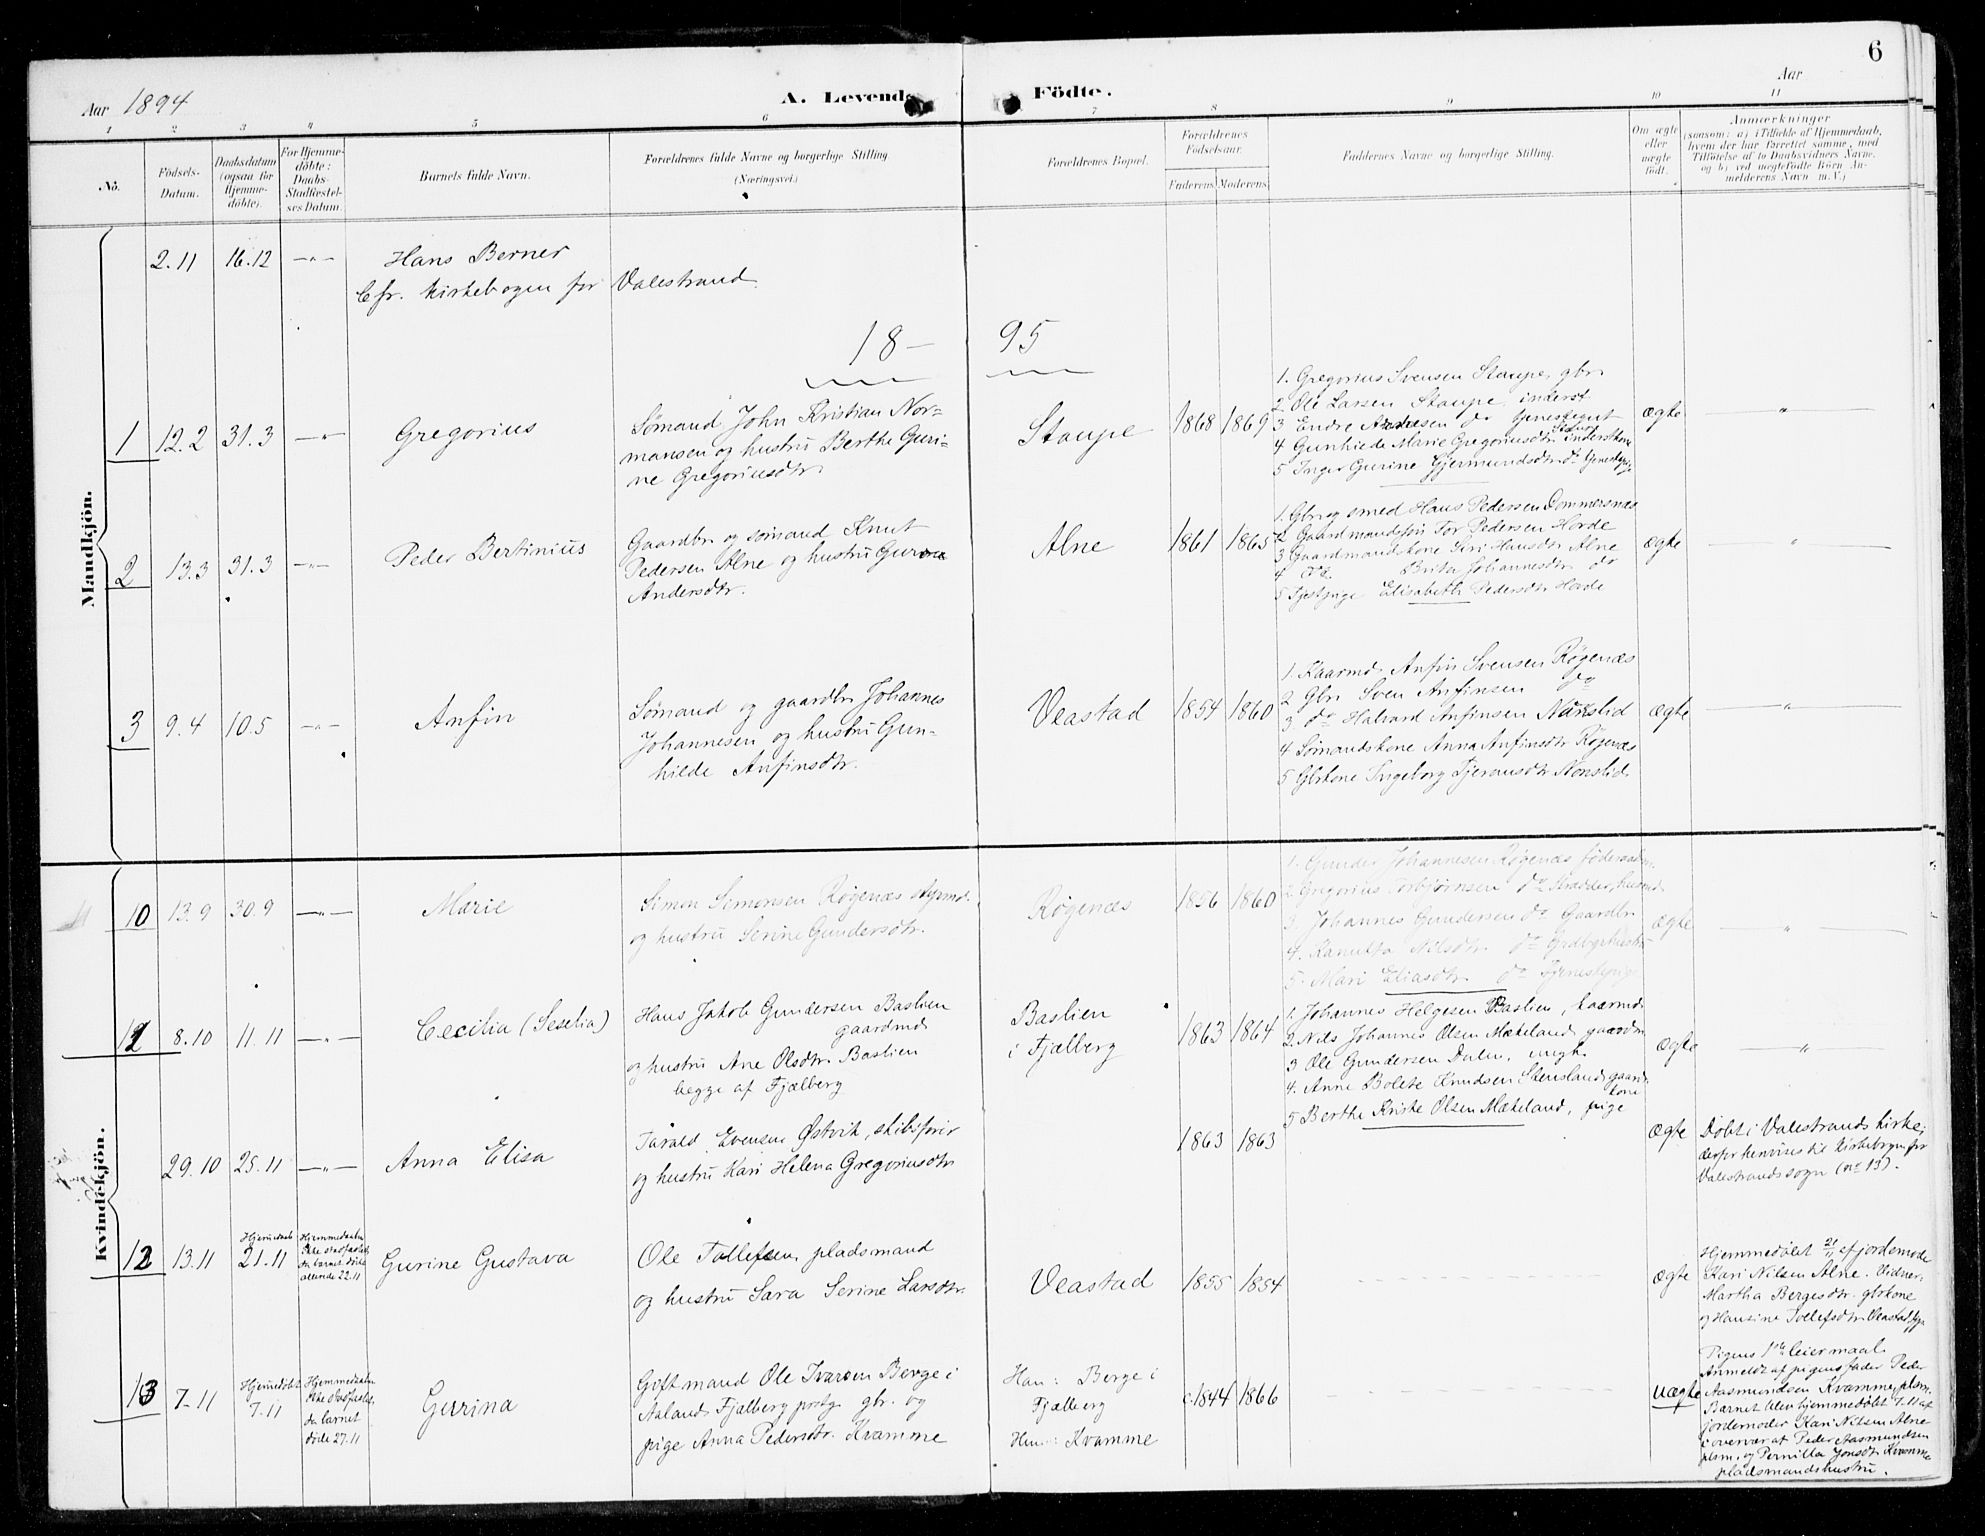 6
Aar 1894
A. Levende Födte.
Aar
1 2 3 4 5 6 7 8 9 10 11
No.
Födsels-Datum.
Daabsdatum (ogsaa for Hjemme-döbte).
For Hjemme-döbte: Daabs-Stadfæstel-ses Datum.
Barnets fulde Navn.
Forældrenes fulde Navne og borgerlige Stilling.
(Næringsvei.)
Forældrenes Bopæl.
Forældrenes Födselsaar.
Faderens Moderens
Faddernes Navne og borgerlige Stilling.
Om ægte eller uægte födt.
Anmærkninger
(saasom: a) i Tilfælde af Hjemmedaab,
hvem der har forrettet samme, med
Tilföielse af to Daabsvidners Navne,
og b) ved uægtefödte Börn An-
melderens Navn m. V.)
Mandkjön.
2.11 16.12 —"— Hans Berner
Cfr. Kirkebogen for Valestrand.
18— 95
1 12.2 31.3 —"— Gregorius
Sømand John Kristian Nor=
mansen og hustru Berthe Guri=
ne Gregoriusdtr.
Staupe 1868 1869
1. Gregorius Svensen Staupe, gbr.
2. Ole Larsen Staupe, inderst
3 Endre do tjenestegut
4 Gunhilde Marie Gregoriusdtr. inderstkone
5 Inger Gurine Gjermundsdtr. do tjenestepige
ægte —"—
2 13.3 31.3 —"— Peder Bertinius
Gaardbr. og sømand Knut
Pedersen Alne og hustru Guro
Andersdtr.
Alne 1861 1865
1. Gbr. og smed Hans Pedersen Ommersnæs
2 Gaardmandssøn Tor Pedersen Horde
3 Gaardmandskone Siri Hansdtr. Alne
4 do Brita Johannesdtr. do
5 Tjestpige Elisabeth Pedersdtr. Horde
ægte —"—
3 9.4 10.5 —"— Anfin
Sømand og gaardbr. Johannes
Johannesen og hustru Gun-
hilde Anfinsdtr.
Veastad 1854 1860
1. Kaarmd. Anfin Svensen Røgenæs
2 Gbr. Sven Anfinsen do
3. do Halvard Anfinsen Nonslid
4 Sømandskone Anna Anfinsdtr. Røgenæs
5 Gbrkone Ingeborg Tjeransdtr. Nonslid.
ægte —"—
Kvindekjön.
10 13.9 30.9 —"— Marie
Simon Simonsen Røgenæs styrmd.
og hustru Serine Gundersdtr.
Røgenæs 1856 1860
1. Gunder Johannesen Røgenæs føderaadm.
2. Gregorius Torbjørnsen do
3. Johannes Gundersen do Gaardbr.
4. Nilsdtr. do
5. Mari Eliasdtr. do Tjenestepige
ægte —"—
11 8.10 11.11 —"— Cecilia (Seselia)
Hans Jakob Gundersen Bastien
gaardmd.
og hustru Ane Olsdtr. Bastien
begge af Fjælberg
Bastien
i Fjælberg
1863 1864
1. Johannes Helgesen Bastien, kaarmd.
2. Nils Johannes Olsen Mækeland, gaardm.
3 Ole Gundersen Dalen, ungk.
4. Anne Bolete Knudsen Stensland, gaard-
kone
5 Berthe Kriste Olsen Mækeland, pige
ægte —"—
29.10 25.11 —"— Anna Elisa
Tarald Evensen Østvik, skibsfører
og hustru Kari Helena Gregoriusdtr.
1863 1863
ægte
Døbt i Valestrands kirke;
derfor henvises til Kirkebogen for
Valestrands sogn (no 13).
12 13.11 Hjemmedøbt 21.11
Hjemmedaaben
ikke stadfæstet,
da barnet døde
allerede 22.11
Gurine Gustava
Ole Tollefsen, pladsmand
og hustru Sara Serine Larsdtr.
Veastad 1855 1854
ægte
Hjemmedøbt 21/11 af jordemoder
Kari Nilsen Alne. Vidner:
Martha Bergesdtr. gbrkone
og Hansine Tollefsdtr. Veastad, pige
13 7.11 Hjemmedøbt 7.11
Hjemmedaaben
ikke stadfæstet,
da barnet
døde 27.11
Gurina
Gift mand Ole Ivarsen Berge i
Aalands, Fjælberg prstg. gbr. og
pige Anna Pedersdtr. Kvamme
Han: Berge i
Fjælberg
Hun: Kvamme
c. 1844 1866
uægte
Pigens 1ste leiermaal.
Anmeldt af pigens fader Peder
Aasmundsen Kvamme, plsm.
Barnet blev hjemmedøbt 7.11 af
jordemoder Kari Nilsen Alne
i overvær af Peder Aasmundsen
plsm. og Pernilla Jonsdtr. Kvamme
pladsmandshustru.